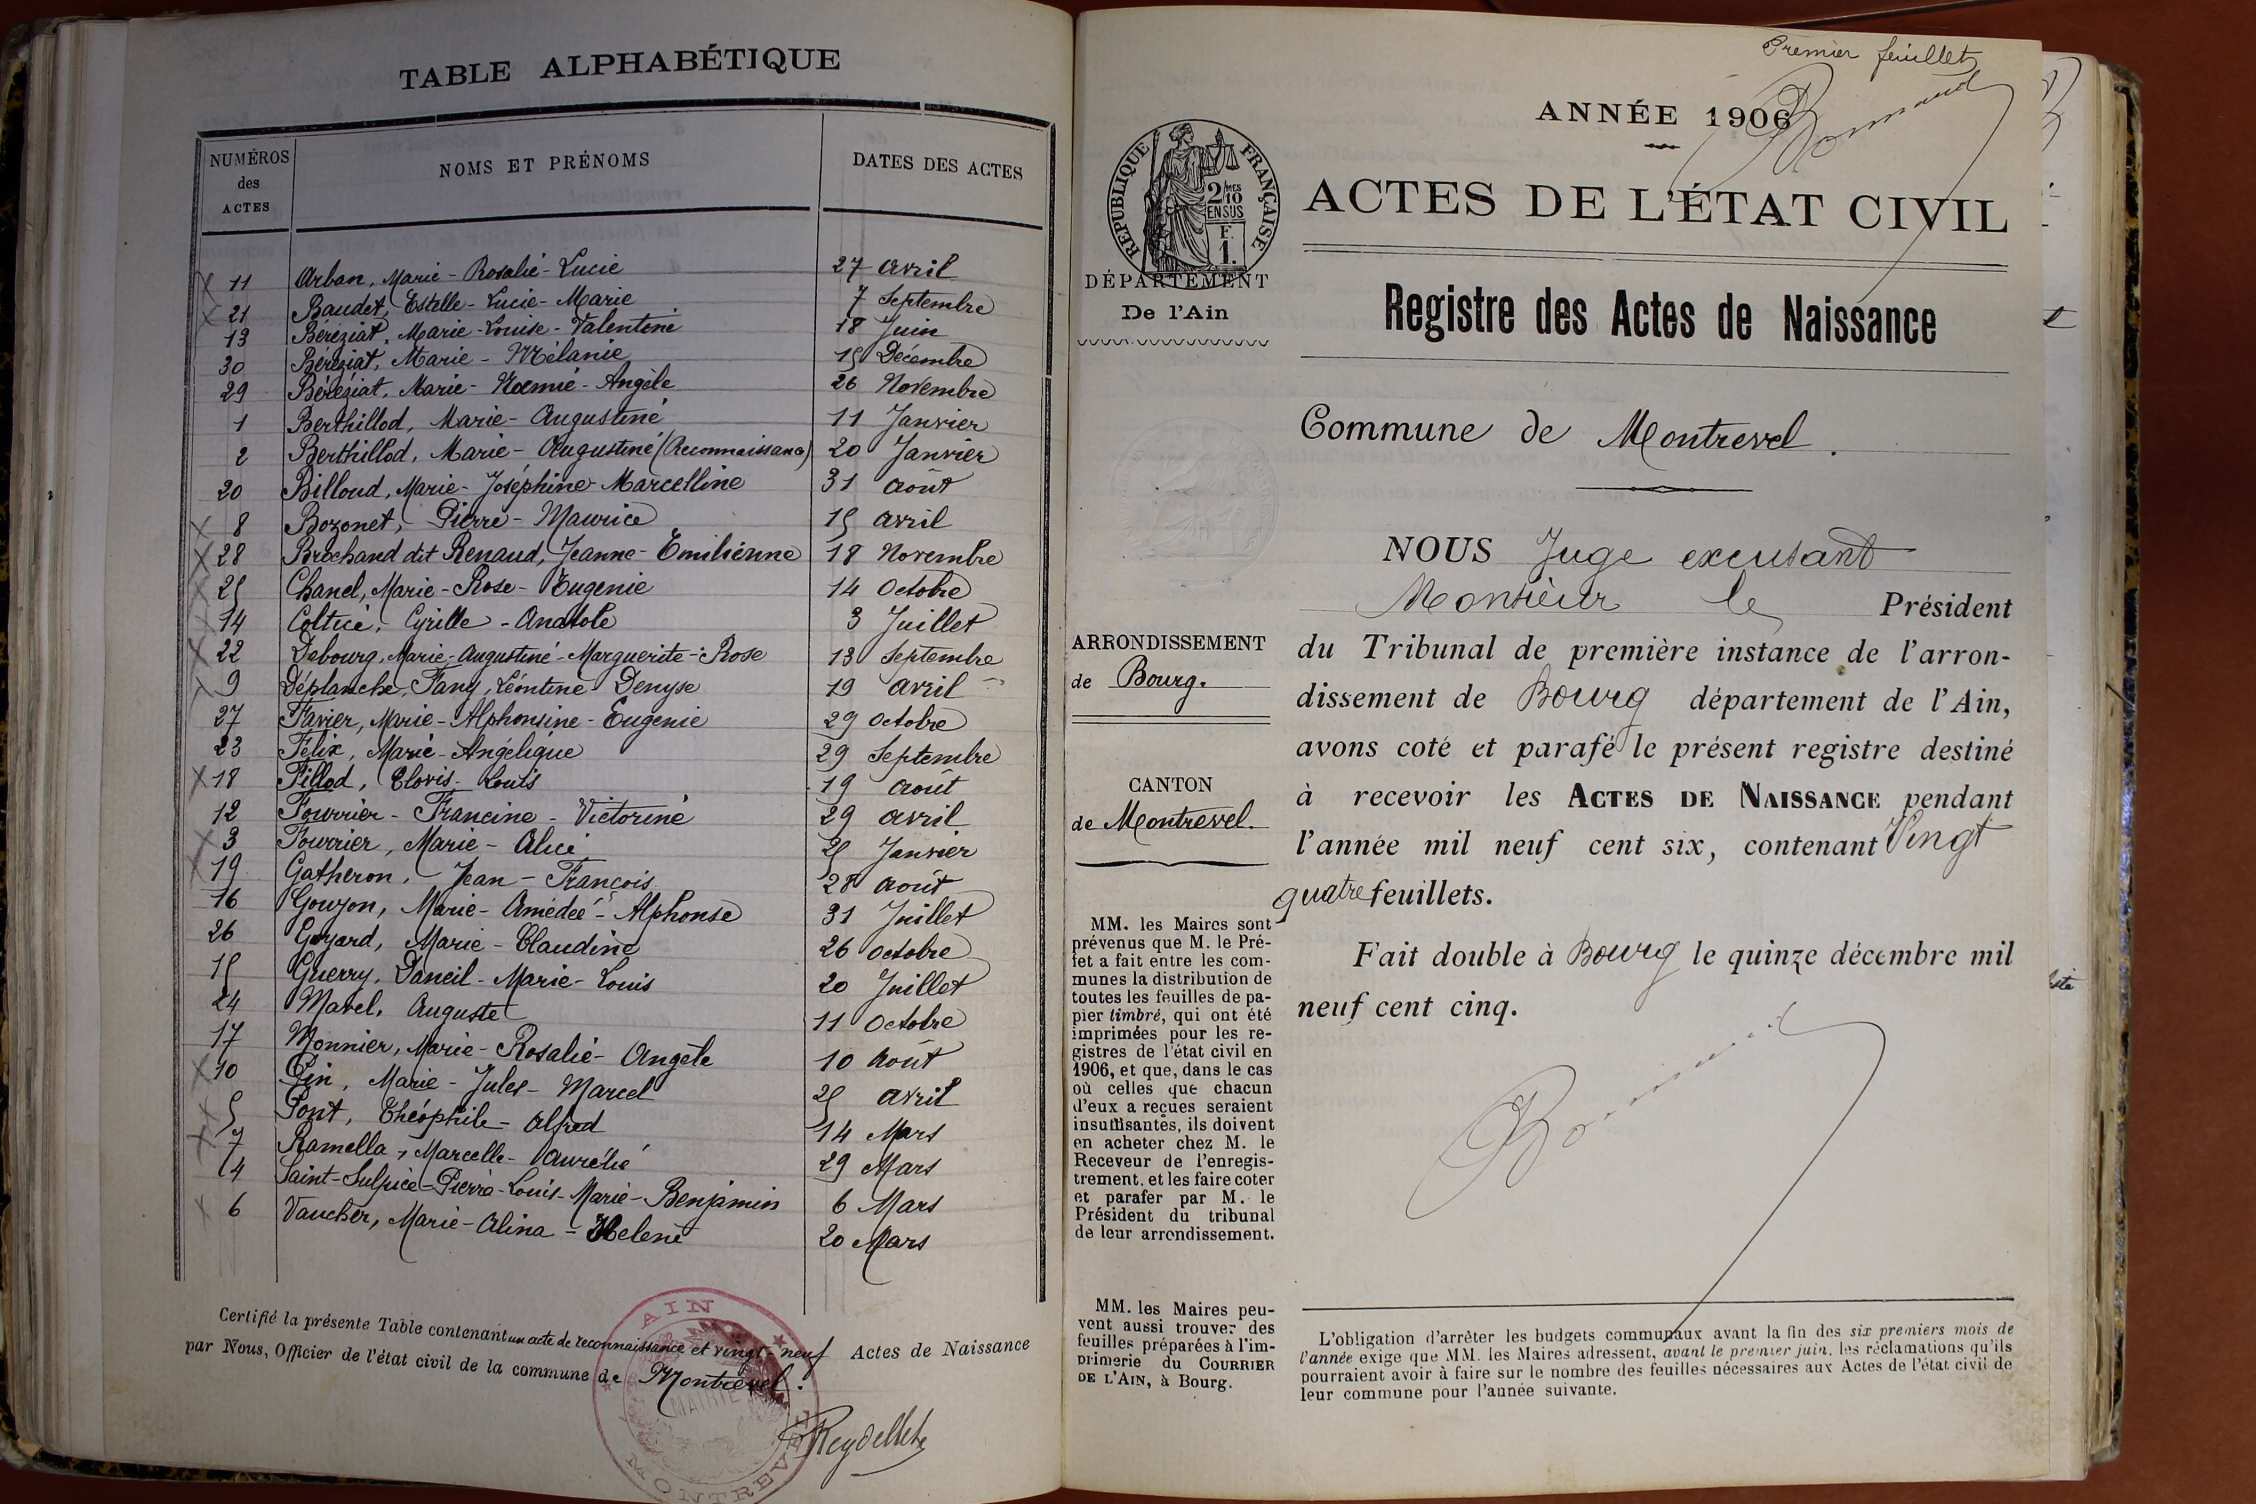 TABLE ALPHABÉTIQUE
NUMÉROS des ACTES NOMS ET PRÉNOMS DATES DES ACTES
11 Arban, Marie-Rosalie-Lucie 27 avril
21 Baudet, Estelle-Lucie-Marie 7 Septembre
13 Béréziat, Marie-Louise-Valentine 18 Juin
30 Béréziat, Marie-Mélanie 15 Décembre
29 Béréziat, Marie-Noémie-Angèle 26 Novembre
1 Berthillod, Marie-Augustine 11 Janvier
2 Berthillod, Marie-Augustine (Reconnaissance) 20 Janvier
20 Billoud, Marie-Joséphine-Marcelline 31 août
8 Bozonet, Pierre-Maurice 15 avril
28 Brochand dit Renaud, Jeanne-Emilienne 18 Novembre
25 Chanel, Marie-Rose-Eugenie 14 Octobre
14 Coltice, Cyrille-Anatole 3 Juillet
22 Debourg, Marie-Augustine-Marguerite-Rose 13 Septembre
9 Déplanche, Fany, Léontine Denyse 19 avril
27 Favier, Marie-Alphonsine-Eugenie 29 Octobre
23 Félix, Marie-Angélique 29 Septembre
18 Fillod, Clovis-Louis 19 août
12 Fourrier-Francine-Victorine 29 avril
3 Fourrier, Marie-Alice 25 Janvier
19 Gatheron, Jean-François 28 août
16 Goujon, Marie-Amédée-Alphonse 31 Juillet
26 Goyard, Marie-Claudine 26 Octobre
15 Guerry, Daneil-Marie-Louis 20 Juillet
24 Mavel, Auguste 11 Octobre
17 Monnier, Marie-Rosalie-Angèle 10 Août
10 Pin, Marie-Jules-Marcel 25 avril
5 Pont, Théophile-Alfred 14 Mars
7 Ramella, Marcelle-Aurélie 29 Mars
4 Saint-Sulpice-Pierre-Louis-Marie-Benjamin 6 Mars
6 Vaucher, Marie-Alina-Helene 20 Mars
Certifié la présente Table contenant un acte de reconnaissance et vingt-neuf Actes de Naissance
par Nous, Officier de l'état civil de la commune de Montrevel.
AIN
MAIRIE
MONTREVEL
Reydellet
Premier feuillet
ANNÉE 1906
RÉPUBLIQUE FRANÇAISE
2/10 EN SUS
F. 1.
ACTES DE L'ÉTAT CIVIL
DÉPARTEMENT
De l'Ain
Registre des Actes de Naissance
Commune de Montrevel.
NOUS Juge excusant
Monsieur le Président
du Tribunal de première instance de l'arron-
dissement de Bourg département de l'Ain,
avons coté et parafé le présent registre destiné
à recevoir les ACTES DE NAISSANCE pendant
l'année mil neuf cent six, contenant Vingt
quatre feuillets.
Fait double à Bourg le quinze décembre mil
neuf cent cinq.
ARRONDISSEMENT
de Bourg.
CANTON
de Montrevel.
MM. les Maires sont
prévenus que M. le Pré-
fet a fait entre les com-
munes la distribution de
toutes les feuilles de pa-
pier timbré, qui ont été
imprimées pour les re-
gistres de l'état civil en
1906, et que, dans le cas
où celles que chacun
d'eux a reçues seraient
insuffisantes, ils doivent
en acheter chez M. le
Receveur de l'enregis-
trement, et les faire coter
et parafer par M. le
Président du tribunal
de leur arrondissement.
MM. les Maires peu-
vent aussi trouver des
feuilles préparées à l'im-
primerie du COURRIER
DE L'AIN, à Bourg.
L'obligation d'arrêter les budgets communaux avant la fin des six premiers mois de
l'année exige que MM. les Maires adressent, avant le premier juin, les réclamations qu'ils
pourraient avoir à faire sur le nombre des feuilles nécessaires aux Actes de l'état civil de
leur commune pour l'année suivante.